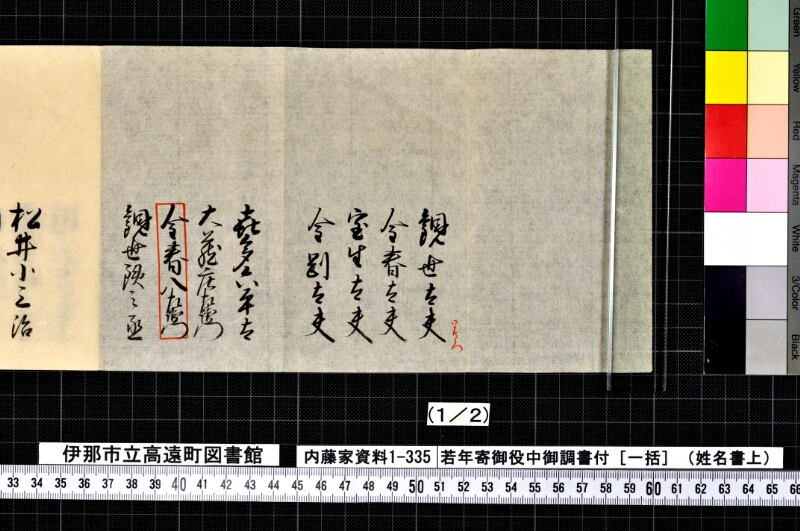 観世太夫
今春太夫
宝生太夫
金剛太夫
喜多六平太
大蔵庄左衛門
今春八左衛門
観世鉄之丞
松井小三治
(1/2)
伊那市立高遠町図書館
内藤家資料1-335
若年寄御役中御調書付 [一括] (姓名書上)
33 34 35 36 37 38 39 40 41 42 43 44 45 46 47 48 49 50 51 52 53 54 55 56 57 58 59 60 61 62 63 64 65 66
Green
Yellow
Red
Magenta
White
3/Color
Black